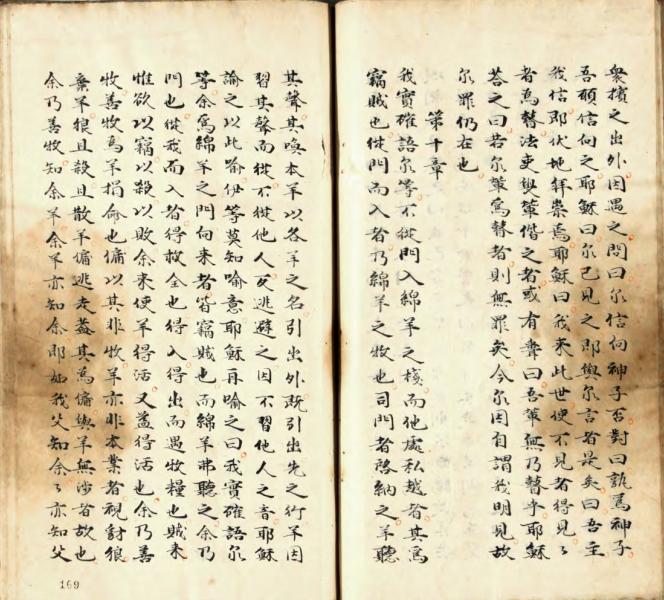 衆擯之出外因遇之問曰尔信向神子否對曰孰爲神子
吾頋信向之耶穌曰尔已見之即與尔言者是矣曰吾主
我信即伏地拜崇焉耶穌曰我来此世使不見者得見〻
者爲瞽法吏與輩偕之者或有聲曰吾軰無乃瞽乎耶穌
荅之曰若尔軰爲瞽者則無罪矣今尔因自謂我明見故
尔罪仍在也
第十章
我實確語尔等不從門入綿羊之棧而他處私越者其爲
竊賊也從門而入者乃綿羊之牧也司門者啓納之羊聽
其聲其喚本羊以各羊之名引出外既引出先之行羊因
習其聲而從不從他人反逃避之因不習他人之音耶穌
諭之以此喻伊等莫知喻意耶穌再喻之曰我實確語尔
等余爲綿羊之門向来者皆竊賊也而綿羊弗聽之余乃
門也從我而入者得救全也得入得出而遇牧糧也賊来
惟欲以竊以殺以敗余来使羊得活又益得活也余乃善
牧善牧爲羊捐命也傭以其非牧羊亦非本業者視豺狼
棄羊狼且殺且散羊傭逃走葢其爲傭與羊無涉者故也
余乃善牧知余羊余羊亦知余即如我父知余〻亦知父
169